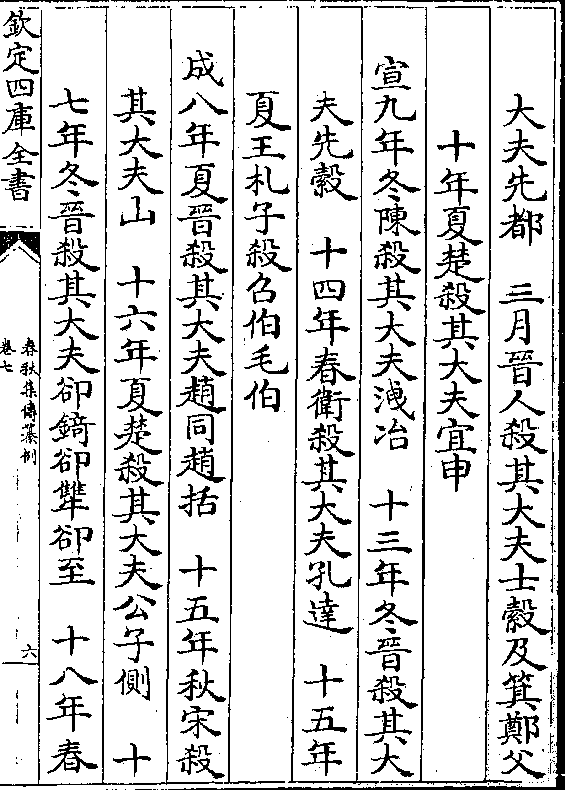 大夫先都　三月晉人殺其大夫士縠及箕鄭父
十年夏楚殺其大夫宜申
宣九年冬陳殺其大夫洩冶　十三年冬晉殺其大
夫先縠　十四年春衛殺其大夫孔達　十五年
夏王札子殺召伯毛伯
成八年夏晉殺其大夫趙同趙括　十五年秋宋殺
其大夫山　十六年夏楚殺其大夫公子側　十
七年冬晉殺其大夫郤錡郤犨郤至　十八年春
欽定四庫全書
春秋集傳纂例
卷七
六